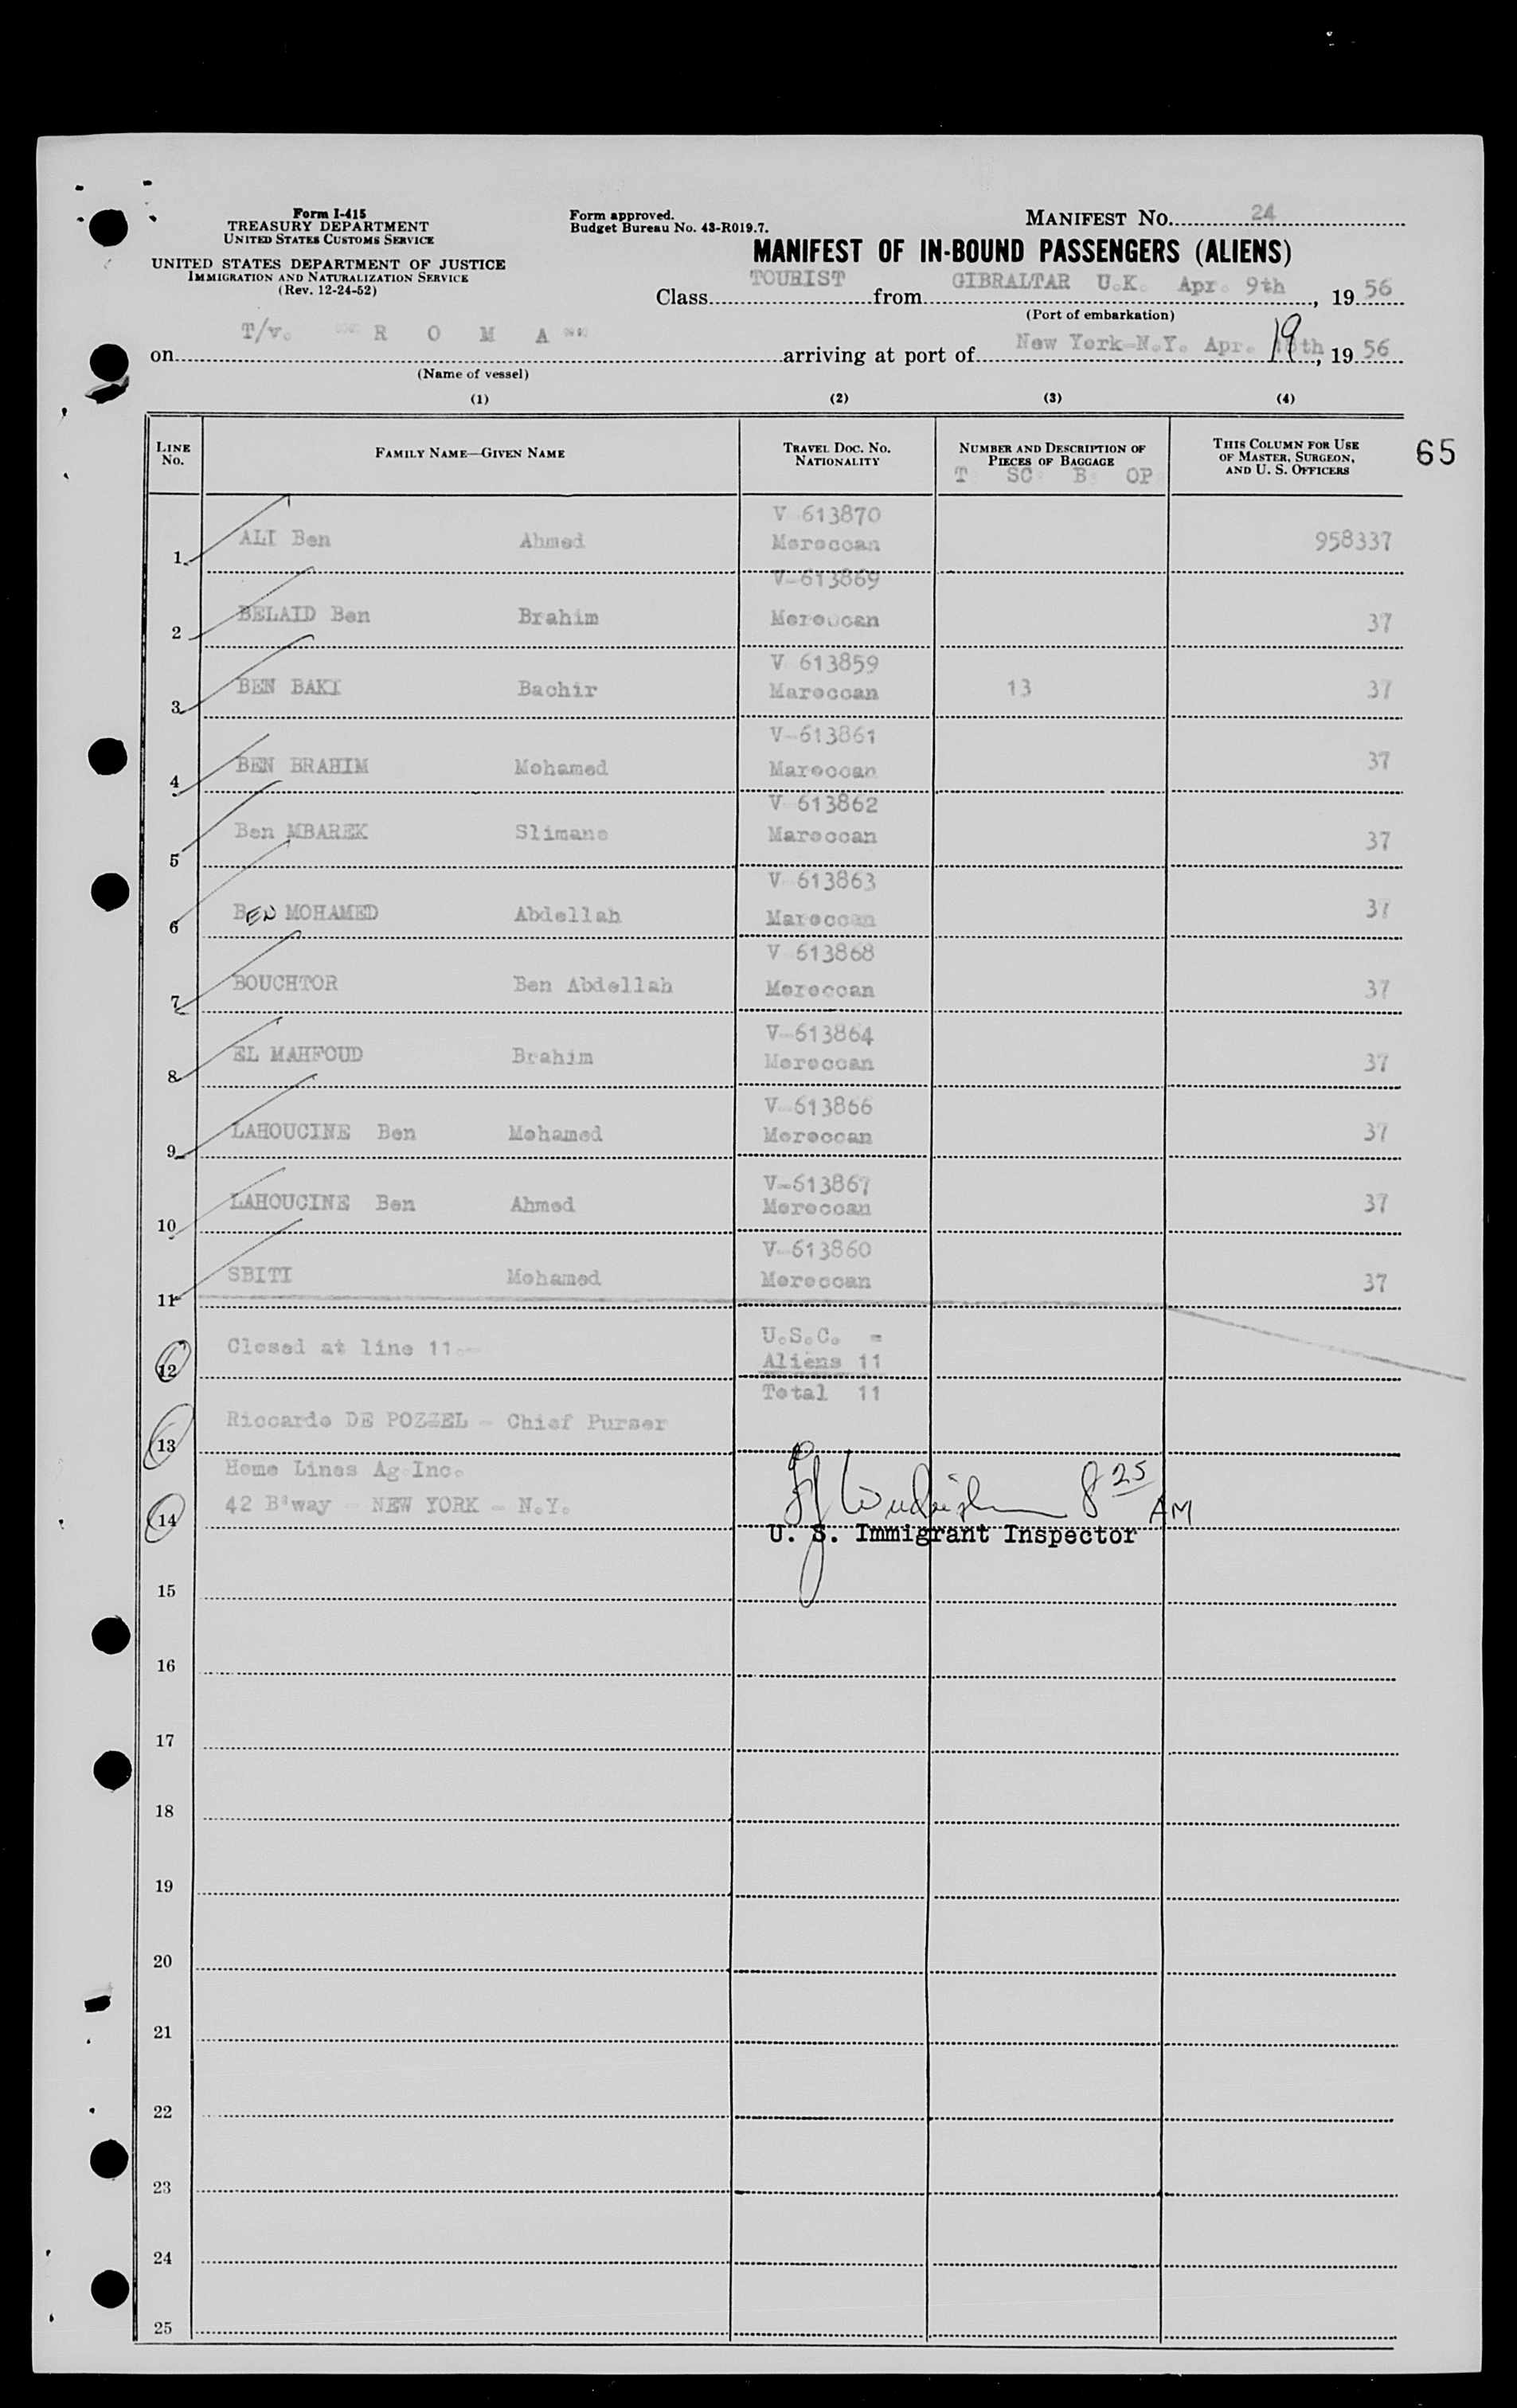 Form I-415
TREASURY DEPARTMENT
UNITED STATES CUSTOMS SERVICE
UNITED STATES DEPARTMENT OF JUSTICE
IMMIGRATION AND NATURALIZATION SERVICE
(Rev. 12-24-52)
Form approved.
Budget Bureau No. 43-R019.7.
MANIFEST NO. 24
MANIFEST OF IN-BOUND PASSENGERS (ALIENS)
Class TOURIST from GIBRALTAR U.K. Apr. 9th, 19 56
(Port of embarkation)
on T/v. "R O M A" arriving at port of New York-N.Y. Apr. 19th, 19 56
(Name of vessel)
(1) (2) (3) (4)
LINE NO. FAMILY NAME—GIVEN NAME TRAVEL DOC. NO. NATIONALITY NUMBER AND DESCRIPTION OF PIECES OF BAGGAGE THIS COLUMN FOR USE OF MASTER, SURGEON, AND U. S. OFFICERS 65
T SC B OP
V 613870
1 ALI Ben Ahmed Moroccan 958337
V-613869
2 BELAID Ben Brahim Moroccan 37
V 613859
3 BEN BAKI Bachir Maroccan 13 37
V-613861
4 BEN BRAHIM Mohamed Maroccan 37
V 613862
5 Ben MBAREK Slimane Maroccan 37
V 613863
6 BEN MOHAMED Abdellah Maroccan 37
V 613868
7 BOUCHTOR Ben Abdellah Moroccan 37
V-613864
8 EL MAHFOUD Brahim Moroccan 37
V-613866
9 LAHOUCINE Ben Mohamed Moroccan 37
V-613867
10 LAHOUCINE Ben Ahmed Moroccan 37
V-613860
11 SBITI Mohamed Moroccan 37
U.S.C. =
12 Closed at line 11.- Aliens 11
Total 11
13 Riccardo DE POZZEL - Chief Purser
Home Lines Ag-Inc.
14 42 B'way - NEW YORK - N.Y.
8 25 AM
U. S. Immigrant Inspector
15
16
17
18
19
20
21
22
23
24
25